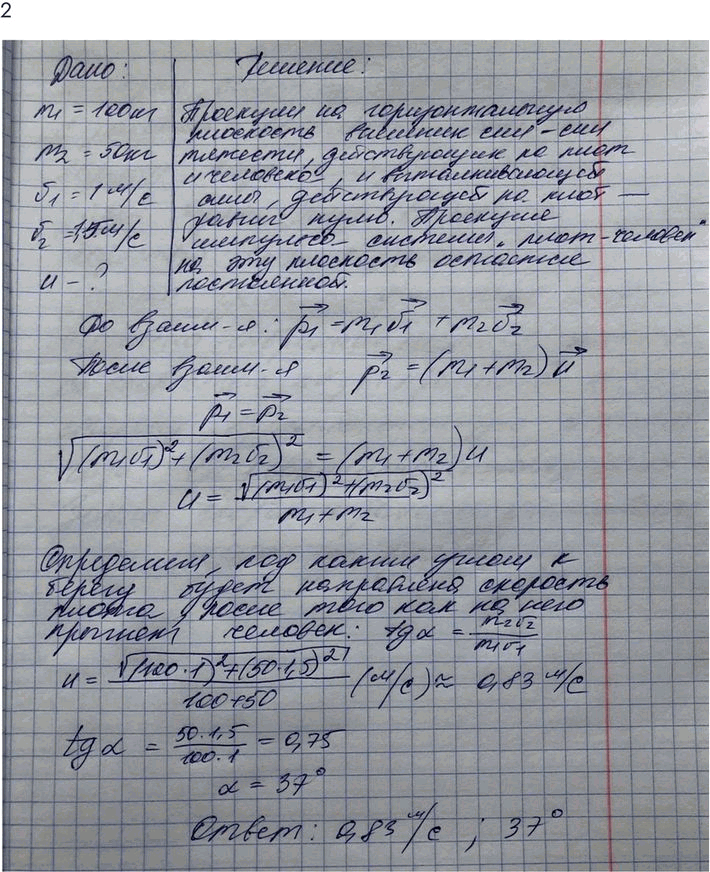 2
Дано: Решение:
m₁ = 100кг Проекции на горизонтальную
плоскость внешних сил - сил
m₂ = 50кг тяжести, действующих на плот
и человека, и выталкивающей
υ₁ = 1 м/с силы, действующей на плот —
равны нулю. Проекция
υ₂ = 1,5м/с импульса системы „плот-человек"
на эту плоскость остается
u - ? постоянной.
До взаим-я: p₁⃗ = m₁υ₁⃗ + m₂υ₂⃗
После взаим-я p₂⃗ = (m₁ + m₂) u⃗
p₁⃗ = p₂⃗
√((m₁υ₁)² + (m₂υ₂)²) = (m₁ + m₂) u
u = √((m₁υ₁)² + (m₂υ₂)²) / (m₁ + m₂)
Определим, под каким углом к
берегу будет направлена скорость
плота, после того как на него
прыгнет человек: tg α = m₂υ₂ / m₁υ₁
u = √((100·1)² + (50·1,5)²) / (100+50) (м/с) ≈ 0,83 м/с
tg α = 50·1,5 / 100·1 = 0,75
α = 37°
Ответ: 0,83 м/с ; 37°